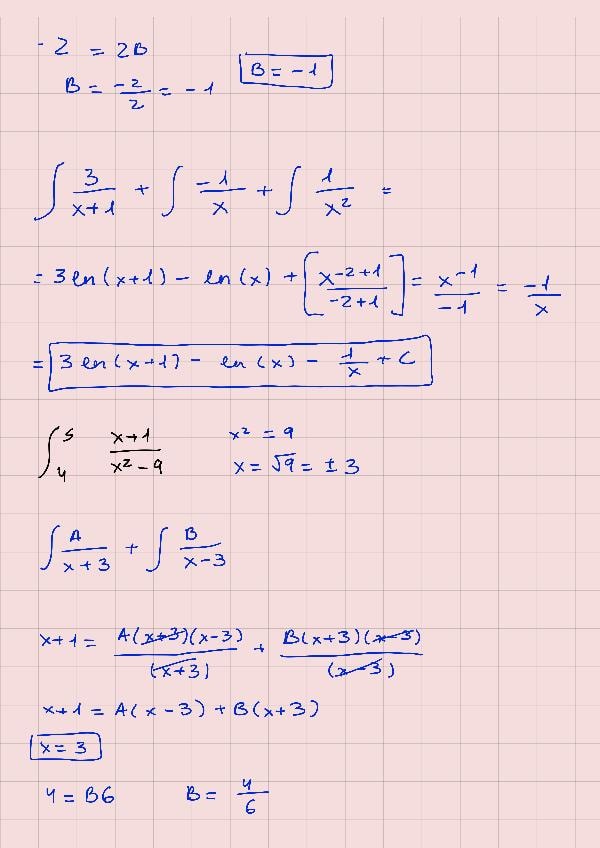 -2 = 2B
B = -2/2 = -1   B = -1
∫ 3/(x+1) + ∫ -1/x + ∫ 1/x² =
= 3 ln(x+1) - ln(x) + [x^(-2+1)/(-2+1)] = x^(-1)/-1 = -1/x
= 3 ln(x+1) - ln(x) - 1/x + C
∫₄⁵ (x+1)/(x²-9)   x² = 9
x = √9 = ± 3
∫ A/(x+3) + ∫ B/(x-3)
x+1 = A(x+3)(x-3)/(x+3) + B(x+3)(x-3)/(x-3)
x+1 = A(x-3) + B(x+3)
x = 3
4 = B6   B = 4/6